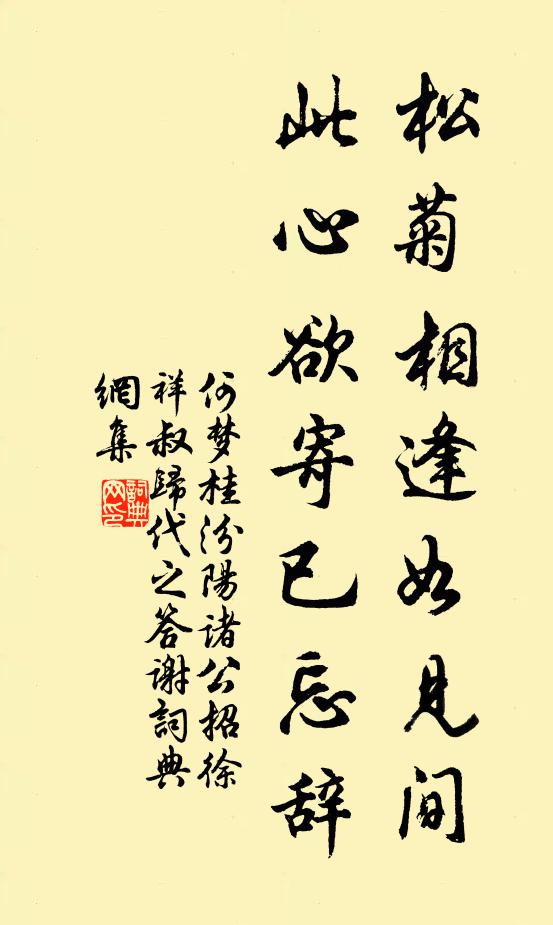 松菊相逢如见间
此心欲寄已忘辞
何梦桂汾陽諸公招徐
祥叔歸代之答谢詞典
網集
詞典
网印